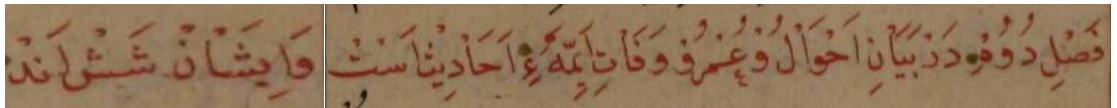 فَصْلِ دُوُمْ دَرْ بَیَانِ اَحْوَالْ وُ عُمْرُ وَ وَفَاتِ اَیِمَّهٔءِ اَحَادِیثْ اَسْتْ
وَایشَانْ شَشْ اَنْدْ